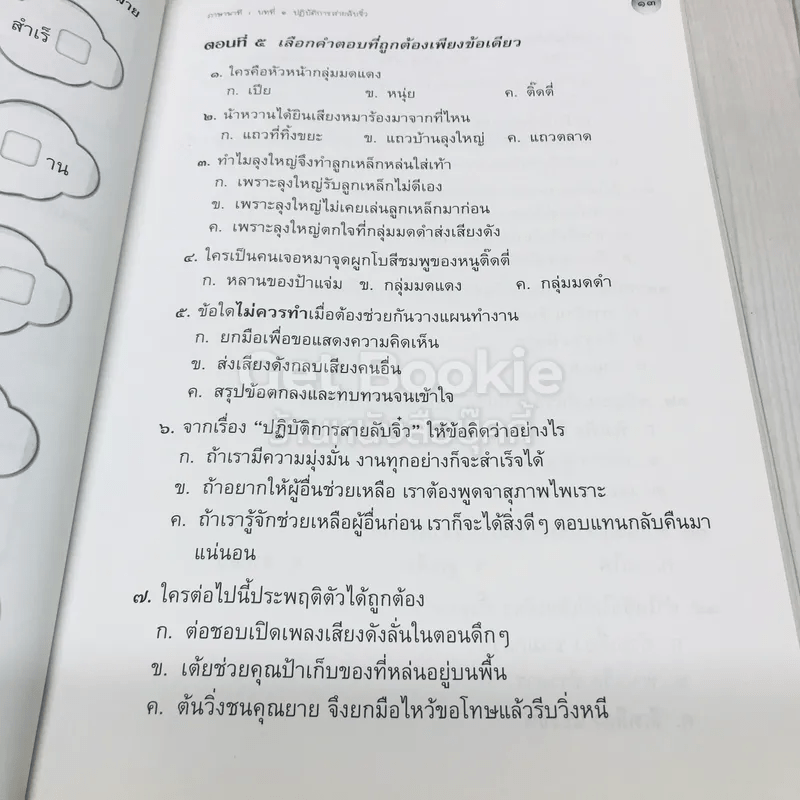 ภาษาพาที : บทที่ ๑ ปฏิบัติการสายลับจิ๋ว
๑๓
สำเร็
าน
ตอนที่ ๕ เลือกคำตอบที่ถูกต้องเพียงข้อเดียว
๑. ใครคือหัวหน้ากลุ่มมดแดง
ก. เปีย ข. หนุ่ย ค. ติ๊ดตี่
๒. น้าหวานได้ยินเสียงหมาร้องมาจากที่ไหน
ก. แถวที่ทิ้งขยะ ข. แถวบ้านลุงใหญ่ ค. แถวตลาด
๓. ทำไมลุงใหญ่จึงทำลูกเหล็กหล่นใส่เท้า
ก. เพราะลุงใหญ่รับลูกเหล็กไม่ดีเอง
ข. เพราะลุงใหญ่ไม่เคยเล่นลูกเหล็กมาก่อน
ค. เพราะลุงใหญ่ตกใจที่กลุ่มมดดำส่งเสียงดัง
๔. ใครเป็นคนเจอหมาจุดผูกโบสีชมพูของหนูติ๊ดตี่
ก. หลานของป้าแจ่ม ข. กลุ่มมดแดง ค. กลุ่มมดดำ
๕. ข้อใดไม่ควรทำเมื่อต้องช่วยกันวางแผนทำงาน
ก. ยกมือเพื่อขอแสดงความคิดเห็น
ข. ส่งเสียงดังกลบเสียงคนอื่น
ค. สรุปข้อตกลงและทบทวนจนเข้าใจ
Get Bookie
ร้านหนังสือบุ๊กกี้
๖. จากเรื่อง “ปฏิบัติการสายลับจิ๋ว” ให้ข้อคิดว่าอย่างไร
ก. ถ้าเรามีความมุ่งมั่น งานทุกอย่างก็จะสำเร็จได้
ข. ถ้าอยากให้ผู้อื่นช่วยเหลือ เราต้องพูดจาสุภาพไพเราะ
ค. ถ้าเรารู้จักช่วยเหลือผู้อื่นก่อน เราก็จะได้สิ่งดีๆ ตอบแทนกลับคืนมา
แน่นอน
๗. ใครต่อไปนี้ประพฤติตัวได้ถูกต้อง
ก. ต่อชอบเปิดเพลงเสียงดังลั่นในตอนดึกๆ
ข. เต้ยช่วยคุณป้าเก็บของที่หล่นอยู่บนพื้น
ค. ต้นวิ่งชนคุณยาย จึงยกมือไหว้ขอโทษแล้วรีบวิ่งหนี